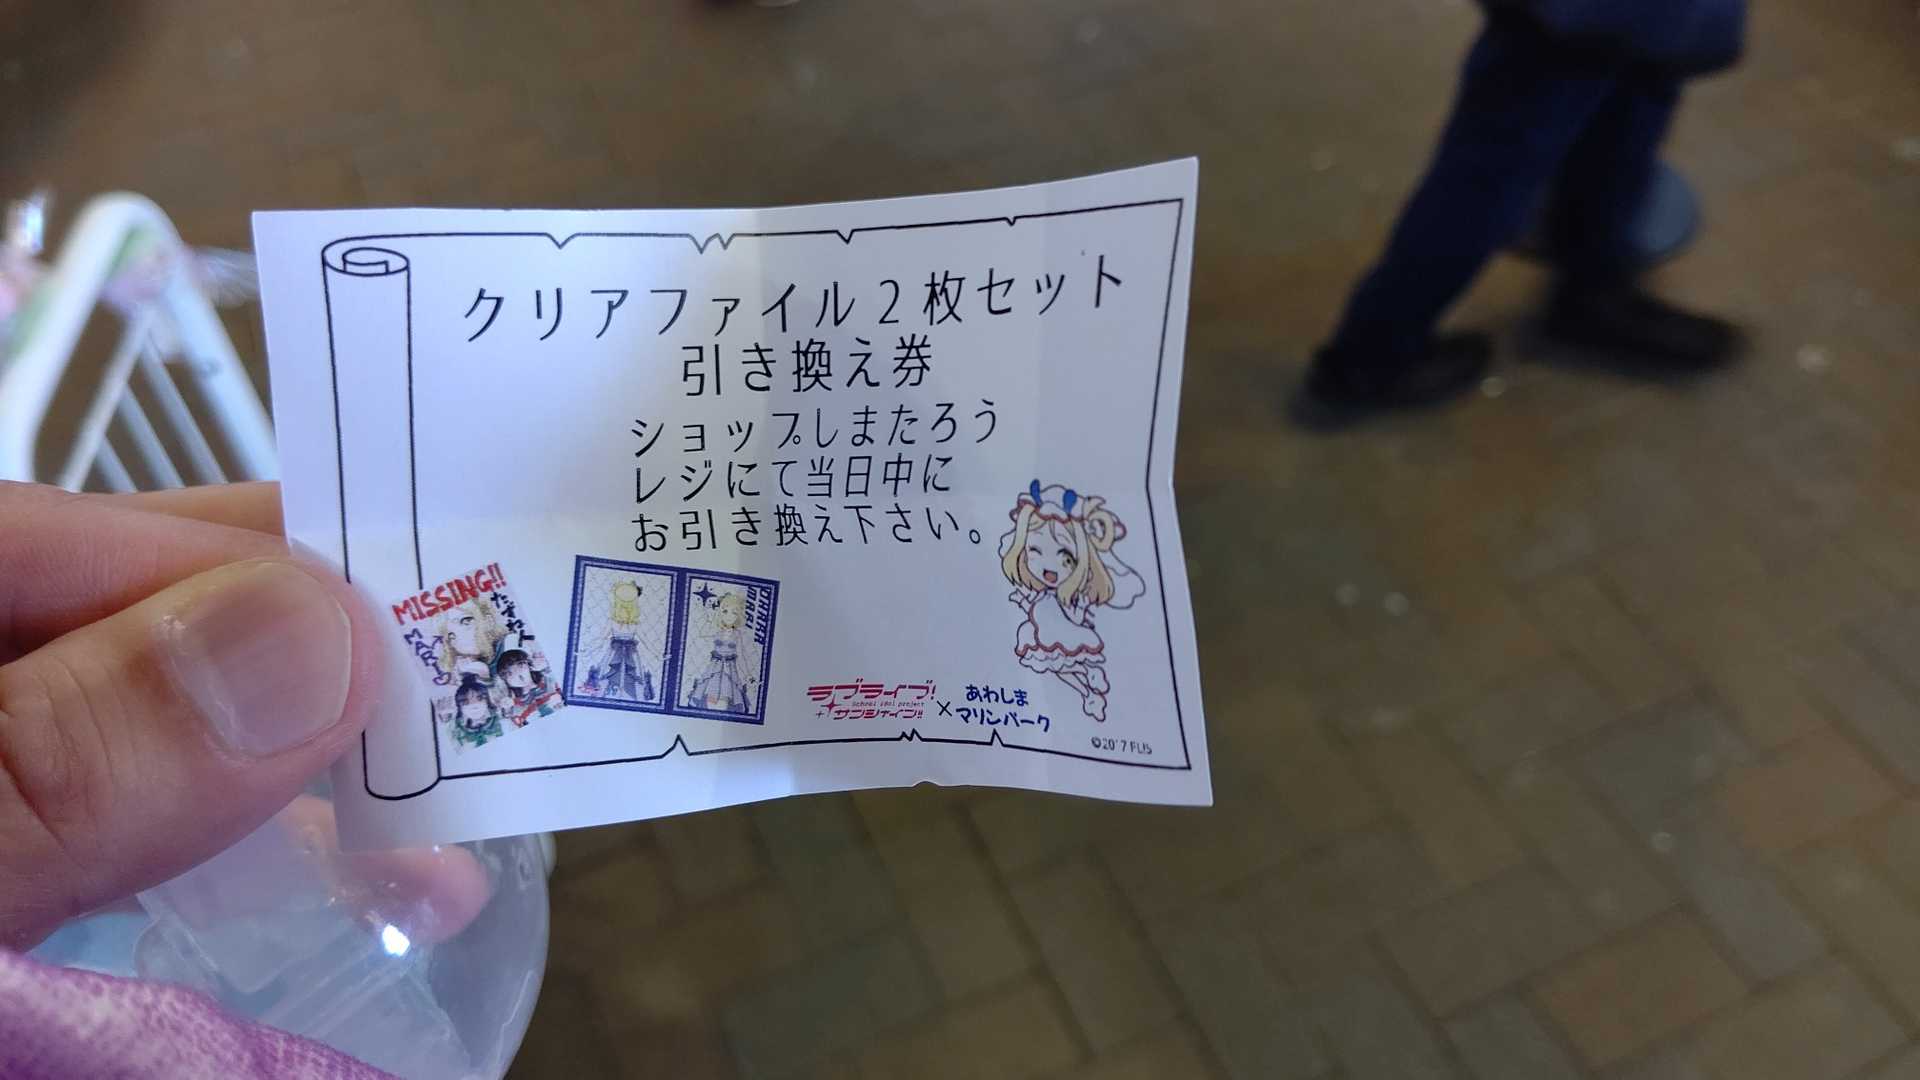 クリアファイル2枚セット
引き換え券
ショップしまたろう
レジにて当日中に
お引き換え下さい。
MISSING!!
たずね人
MARI
OHARA
MARI
ラブライブ!
School idol project
サンシャイン!!
×
あわしま
マリンパーク